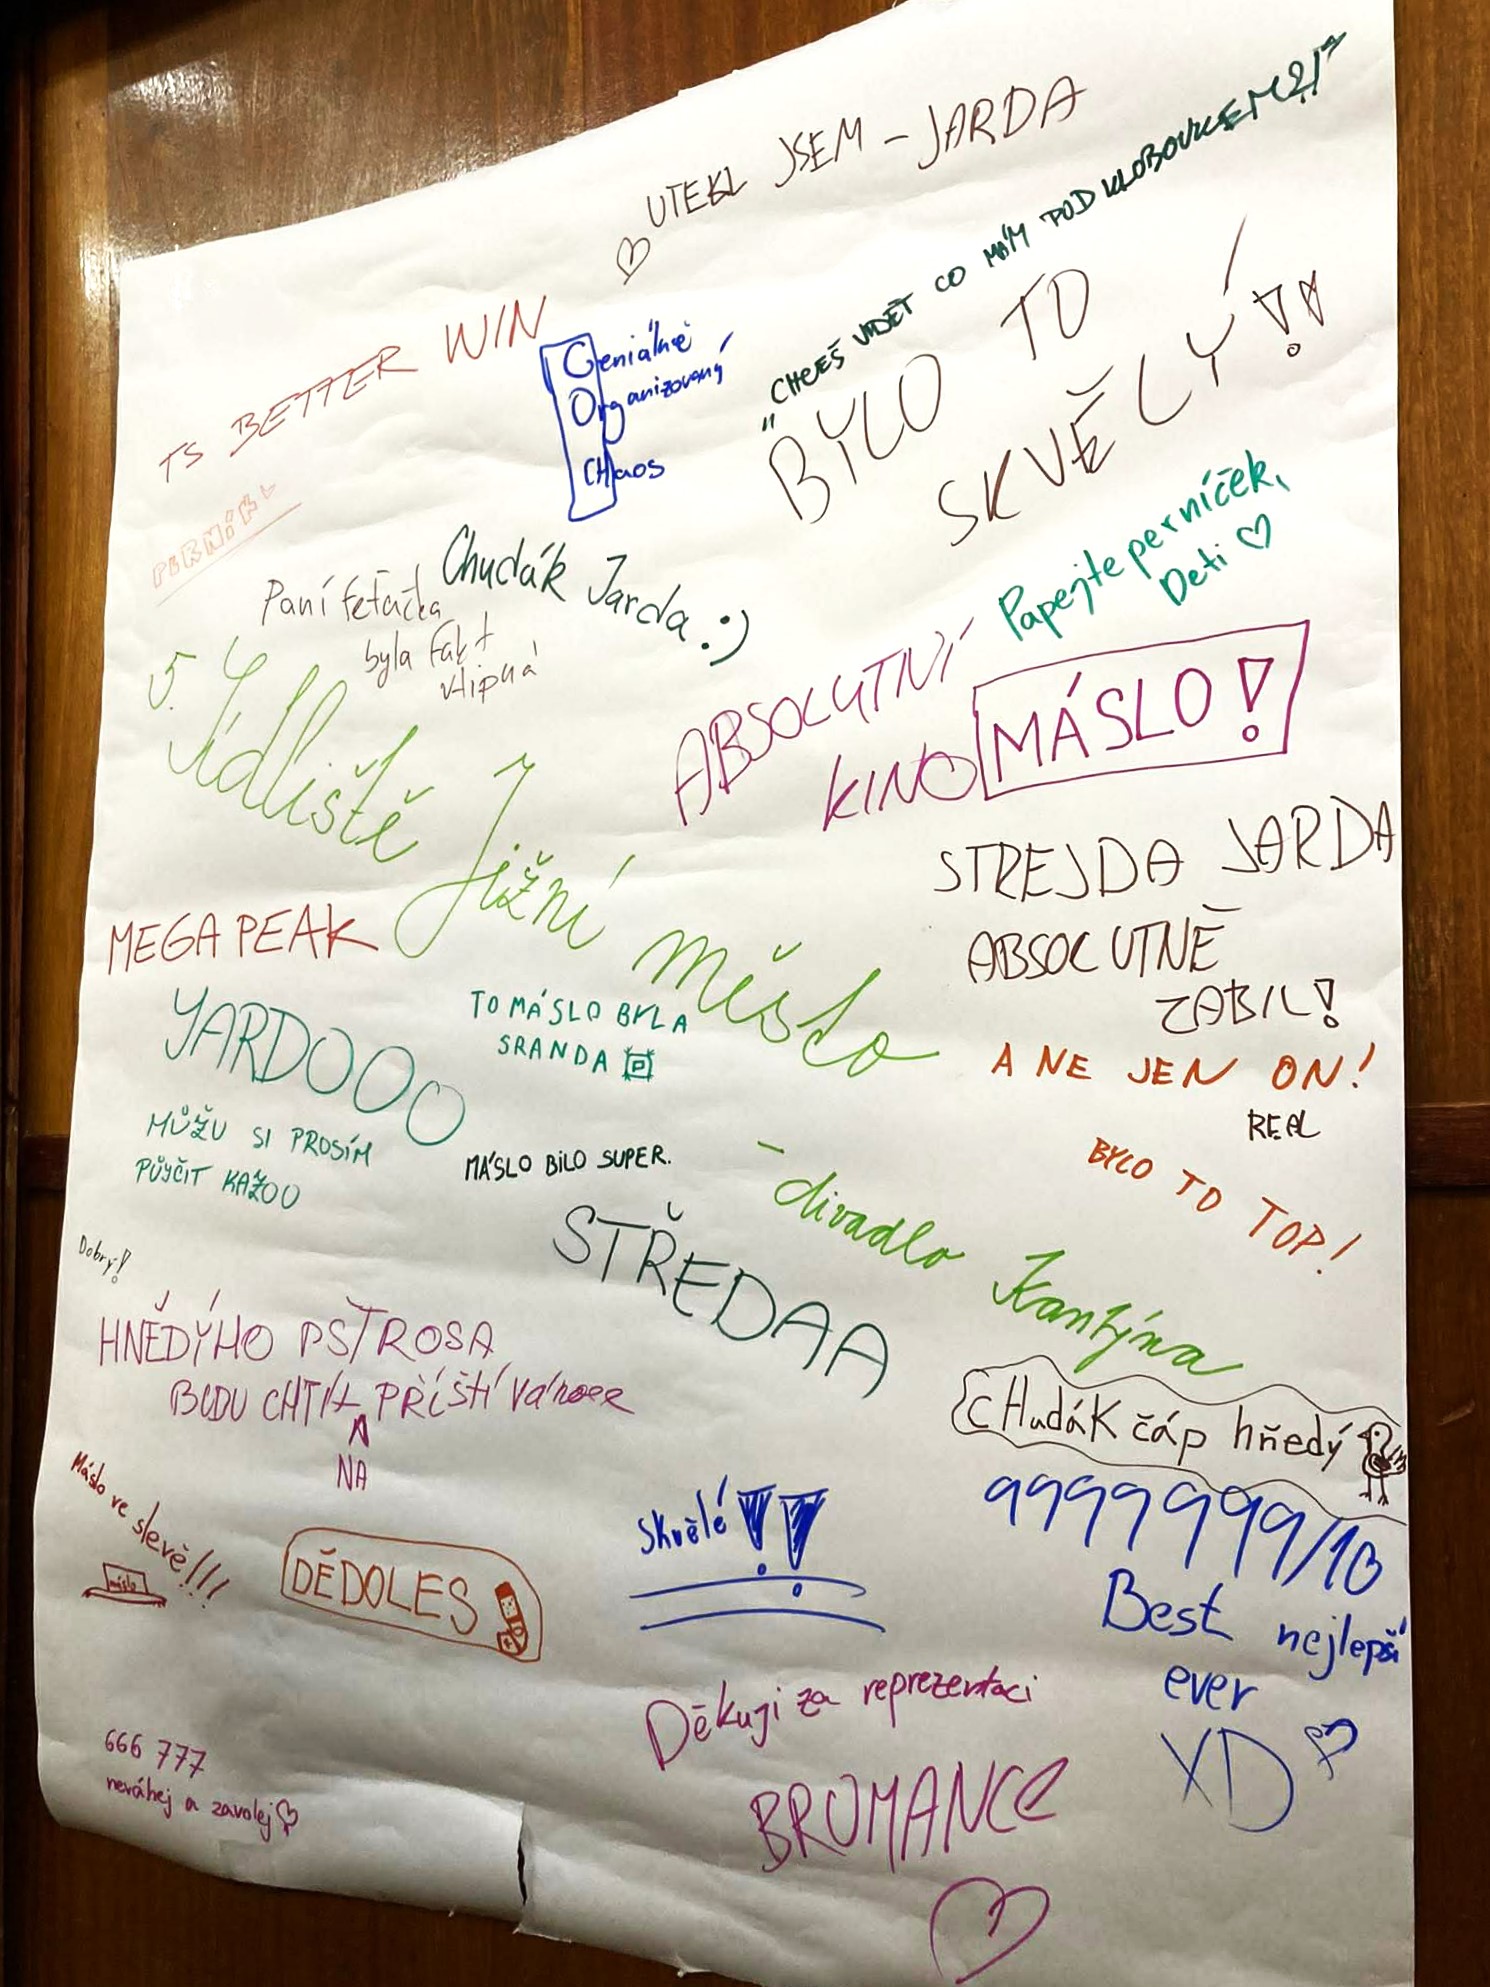 UTEKL JSEM - JARDA
„CHCEŠ VIDĚT CO MÁM POD KLOBOUKEM?!"
TS BETTER WIN
Geniálně
Organizovaný
CHaos
BYLO TO
SKVĚLÝ!!
PERNÍK
Papejte perníček,
Deti ♡
Chudák Jarda :)
Paní feťačka
byla fakt
vtipná
ABSOLUTNÍ
KINO
MÁSLO!
5. Jídliště Jižní město
- divadlo Kantýna
STREJDA JARDA
ABSOLUTNĚ
ZABIL!
A NE JEN ON!
REAL
MEGA PEAK
YARDOOO
TO MÁSLO BYLA
SRANDA
MŮŽU SI PROSÍM
PŮJČIT KAZOO
MÁSLO BILO SUPER.
BYLO TO TOP!
STŘEDAA
Dobrý!
HNĚDÝHO PŠTROSA
BUDU CHTÍT PŘÍŠTÍ Vánoce
NA
cHudáK čáp hňedý
Máslo ve slevě!!!
máslo
DĚDOLES
Skvělé!!
9999999/10
Best nejlepší
ever
XD
Děkuji za reprezentaci
BROMANCE
666 777
neváhej a zavolej ♡